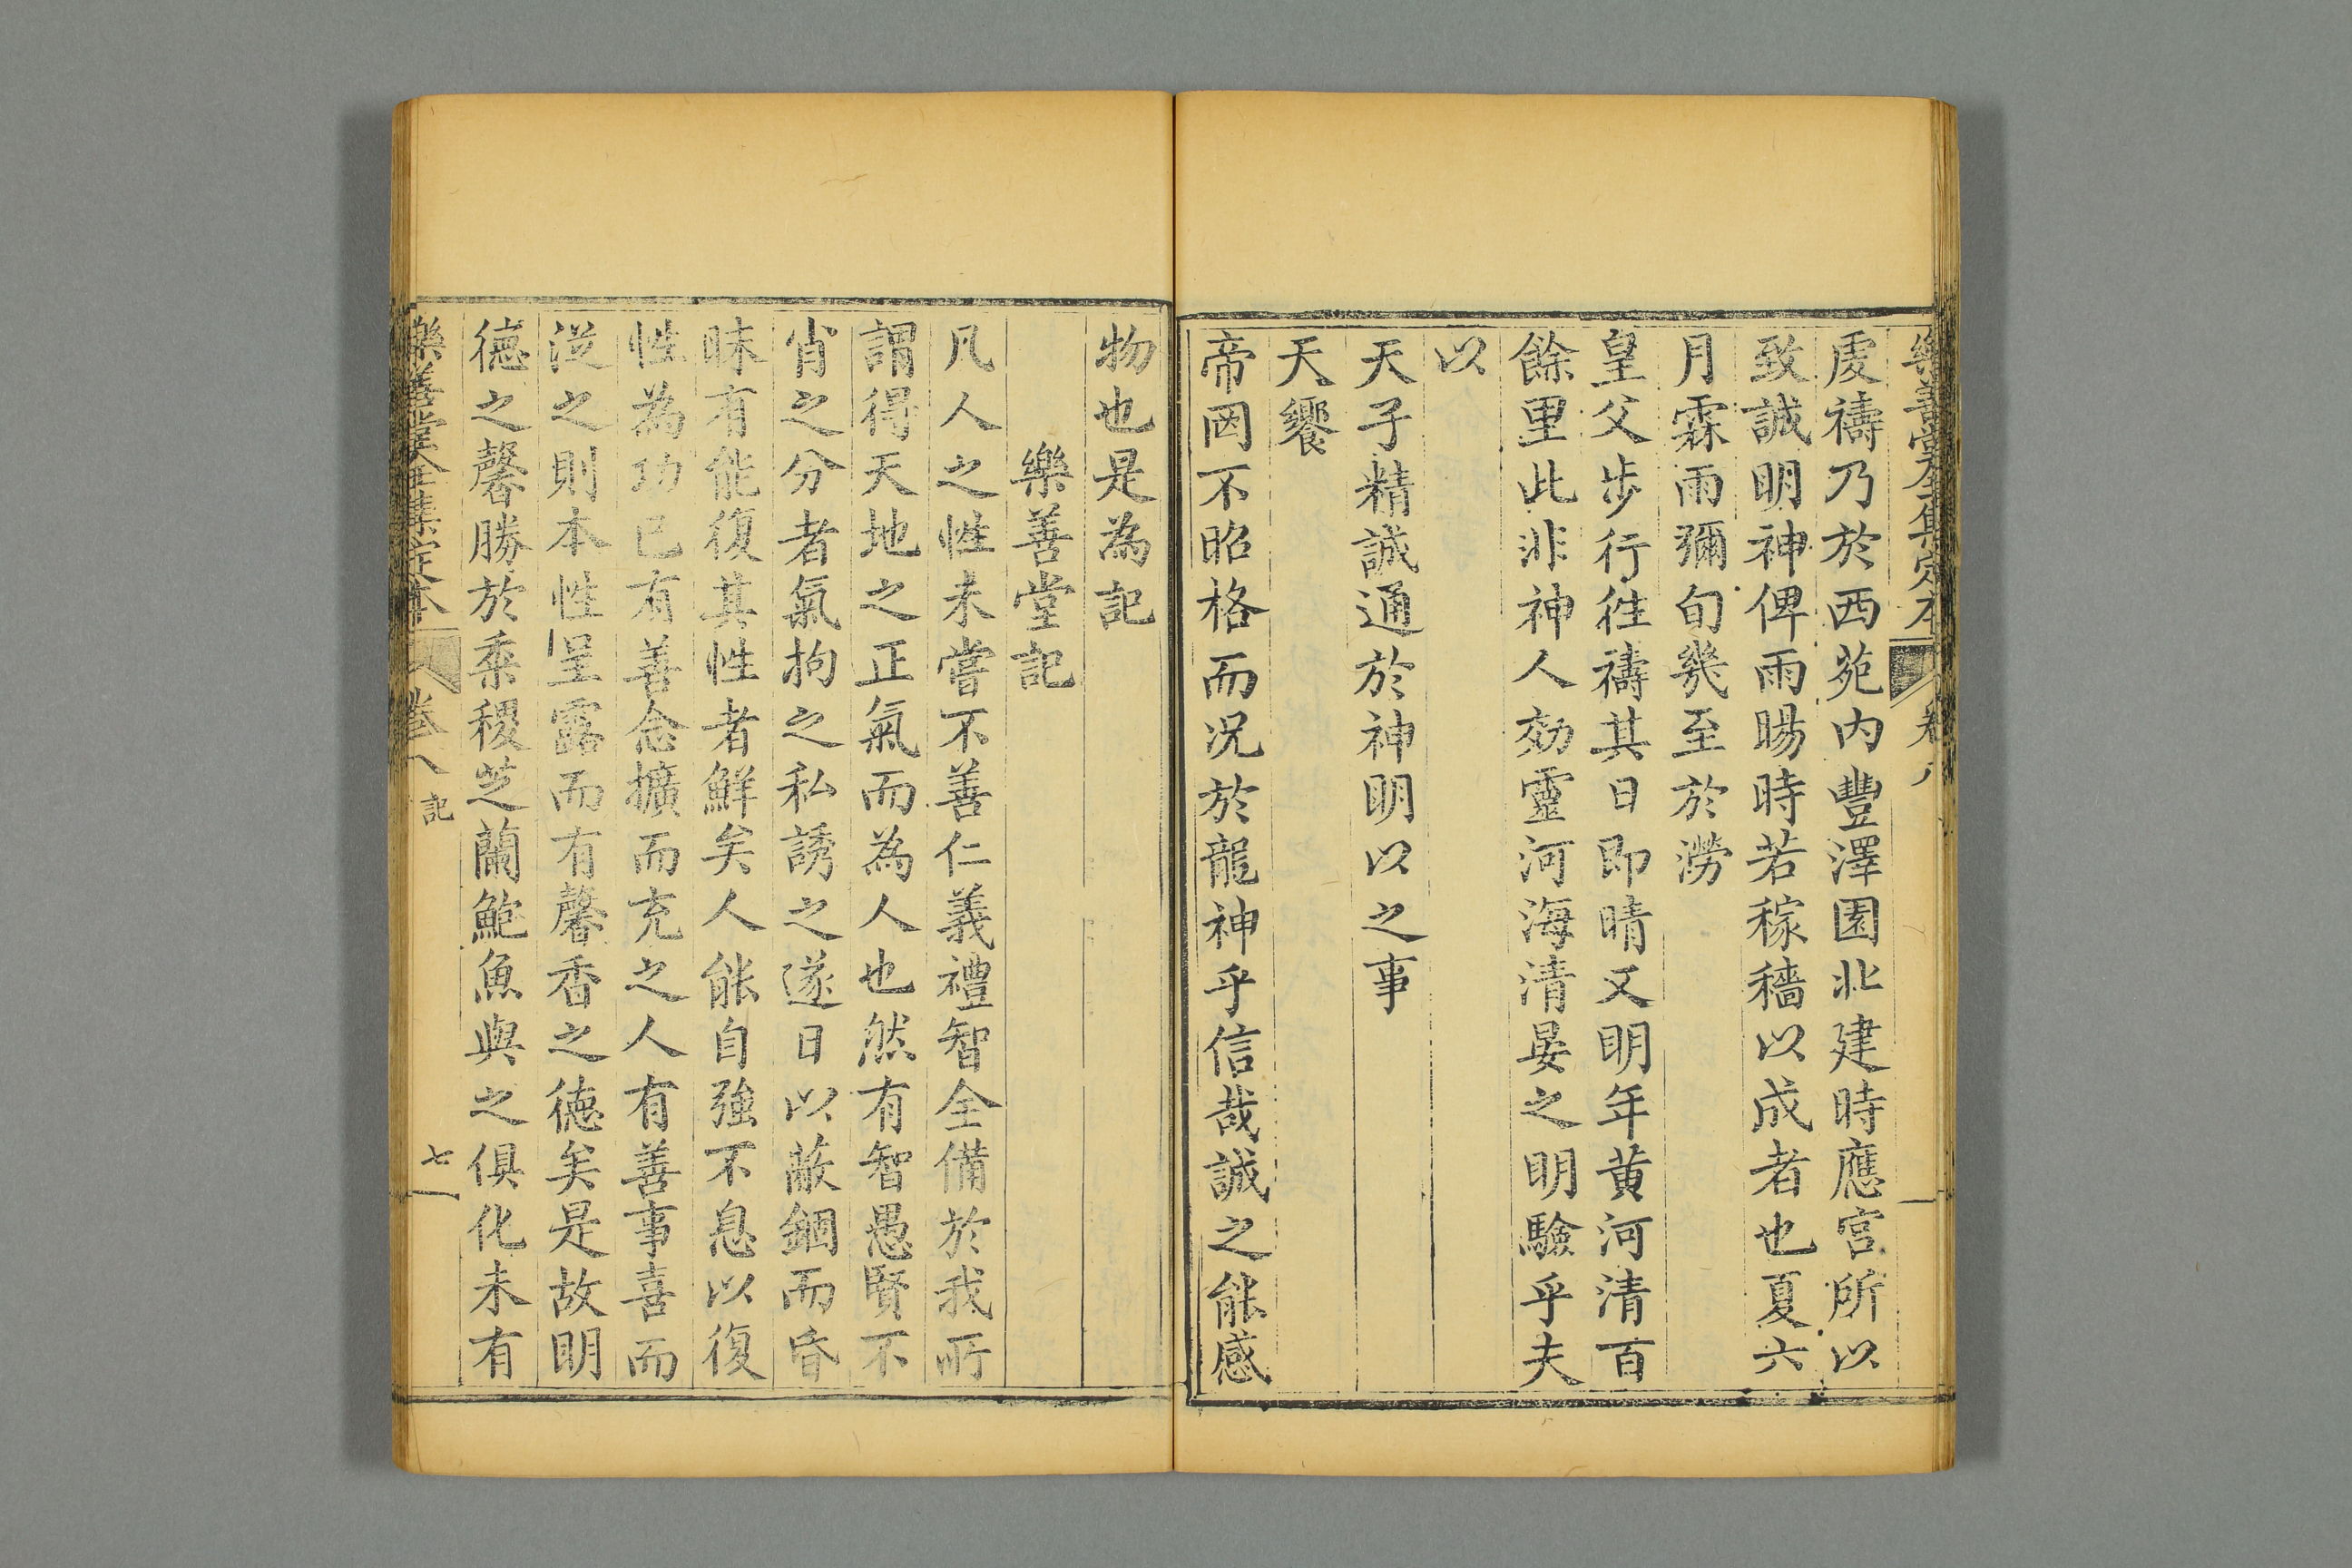 樂善堂全集定本 卷八
虔禱乃於西苑内豐澤園北建時應宫所以
致誠明神俾雨暘時若稼穡以成者也夏六
月霖雨彌旬幾至於澇
皇父步行徃禱其日即晴又明年黄河清百
餘里此非神人効靈河海清晏之明驗乎夫
以
天子精誠通於神明以之事
天饗
帝罔不昭格而况於龍神乎信哉誠之能感
物也是為記
樂善堂記
凡人之性未嘗不善仁義禮智全備於我所
謂得天地之正氣而為人也然有智愚賢不
肖之分者氣拘之私誘之遂日以蔽錮而昏
昧有能復其性者鮮矣人能自強不息以復
性為功已有善念擴而充之人有善事喜而
從之則本性呈露而有馨香之德矣是故明
德之馨勝於黍稷芝蘭鮑魚與之俱化未有
樂善堂全集定本 卷八 記 七